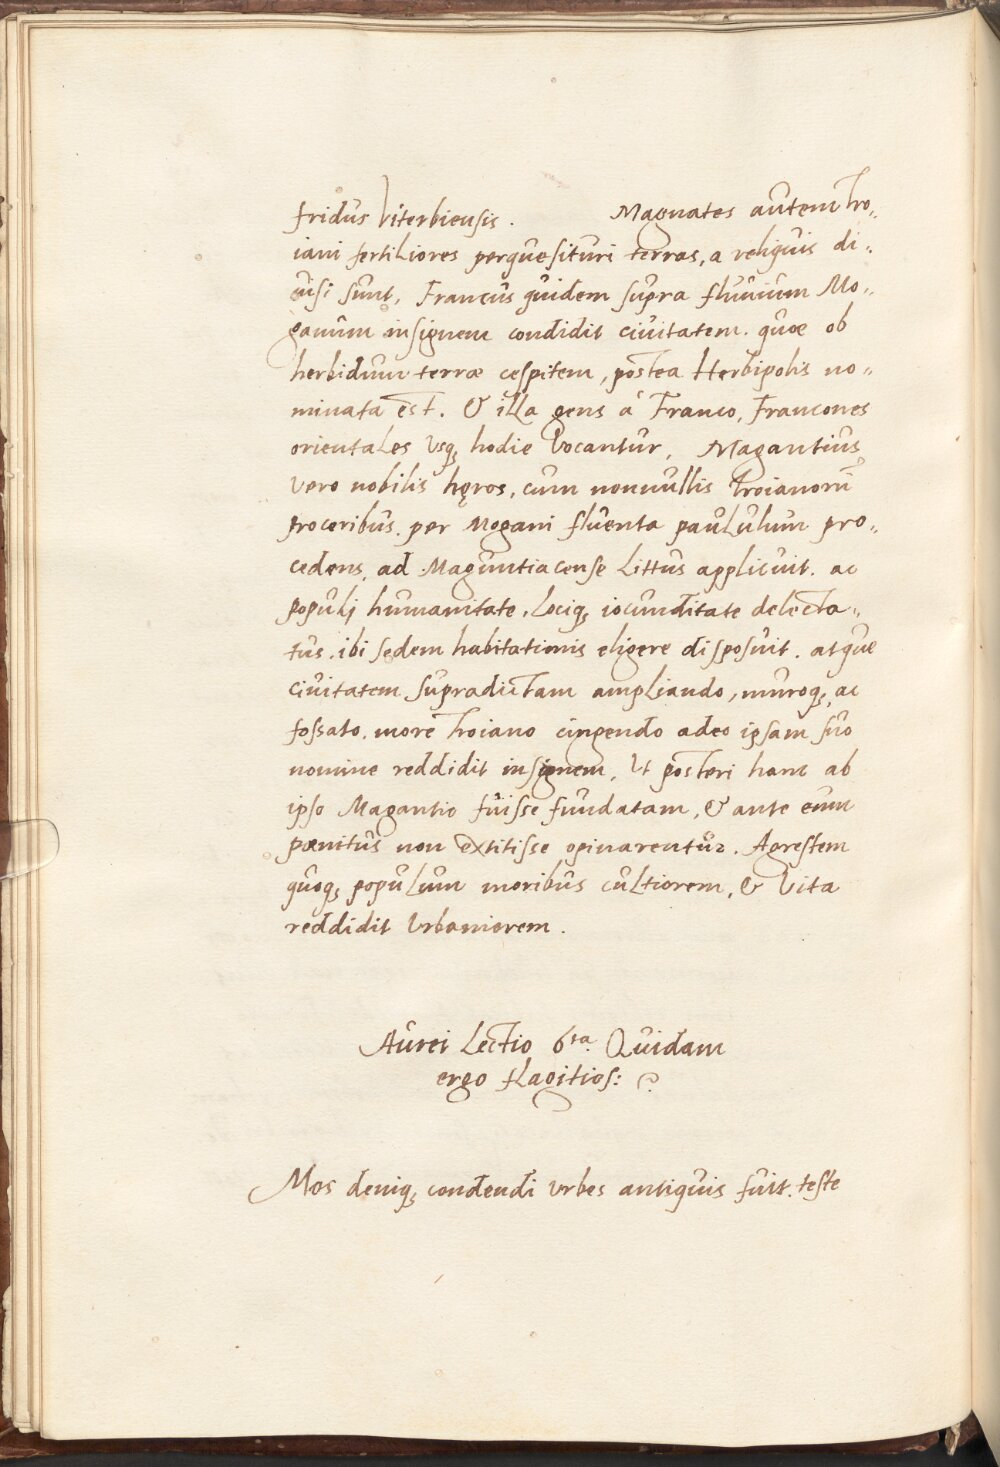 fridus Viterbiensis. Magnates autem Tro„
iani fertiliores perquesituri terras, a reliquis di„
uisi sunt, Francus quidem supra fluuium Mo„
ganum insignem condidit ciuitatem. quæ ob
herbidum terræ cespitem, postea Herbipolis no„
minata est. & illa gens á Franco, Francones
orientales Vsq, hodie Vocantur, Magantius
vero nobilis hęros, cum nonnullis Troianorū
proceribus. per Mogani fluenta paululum pro„
cedens, ad Maguntiacense Littus applicuit. ac
populi humanitate. Lociq, iocunditate delecta„
tus. ibi sedem habitationis eligere disposuit. atque
ciuitatem supradictam ampliando, muroq, ac
fossato. more Troiano cingendo adeo ipsam suo
nomine reddidit insignem, Vt posteri hanc ab
ipso Magantio fuisse fundatam, & ante eum
pœnitus non extitisse opinarentur. Agrestem
quoq, populum moribus cultiorem, & Vita
reddidit Vrbaniorem.
Aurei Lectio 6ta. Quidam
ergo flagitios:
Mos deniq, condendi vrbes antiquis fuit. teste